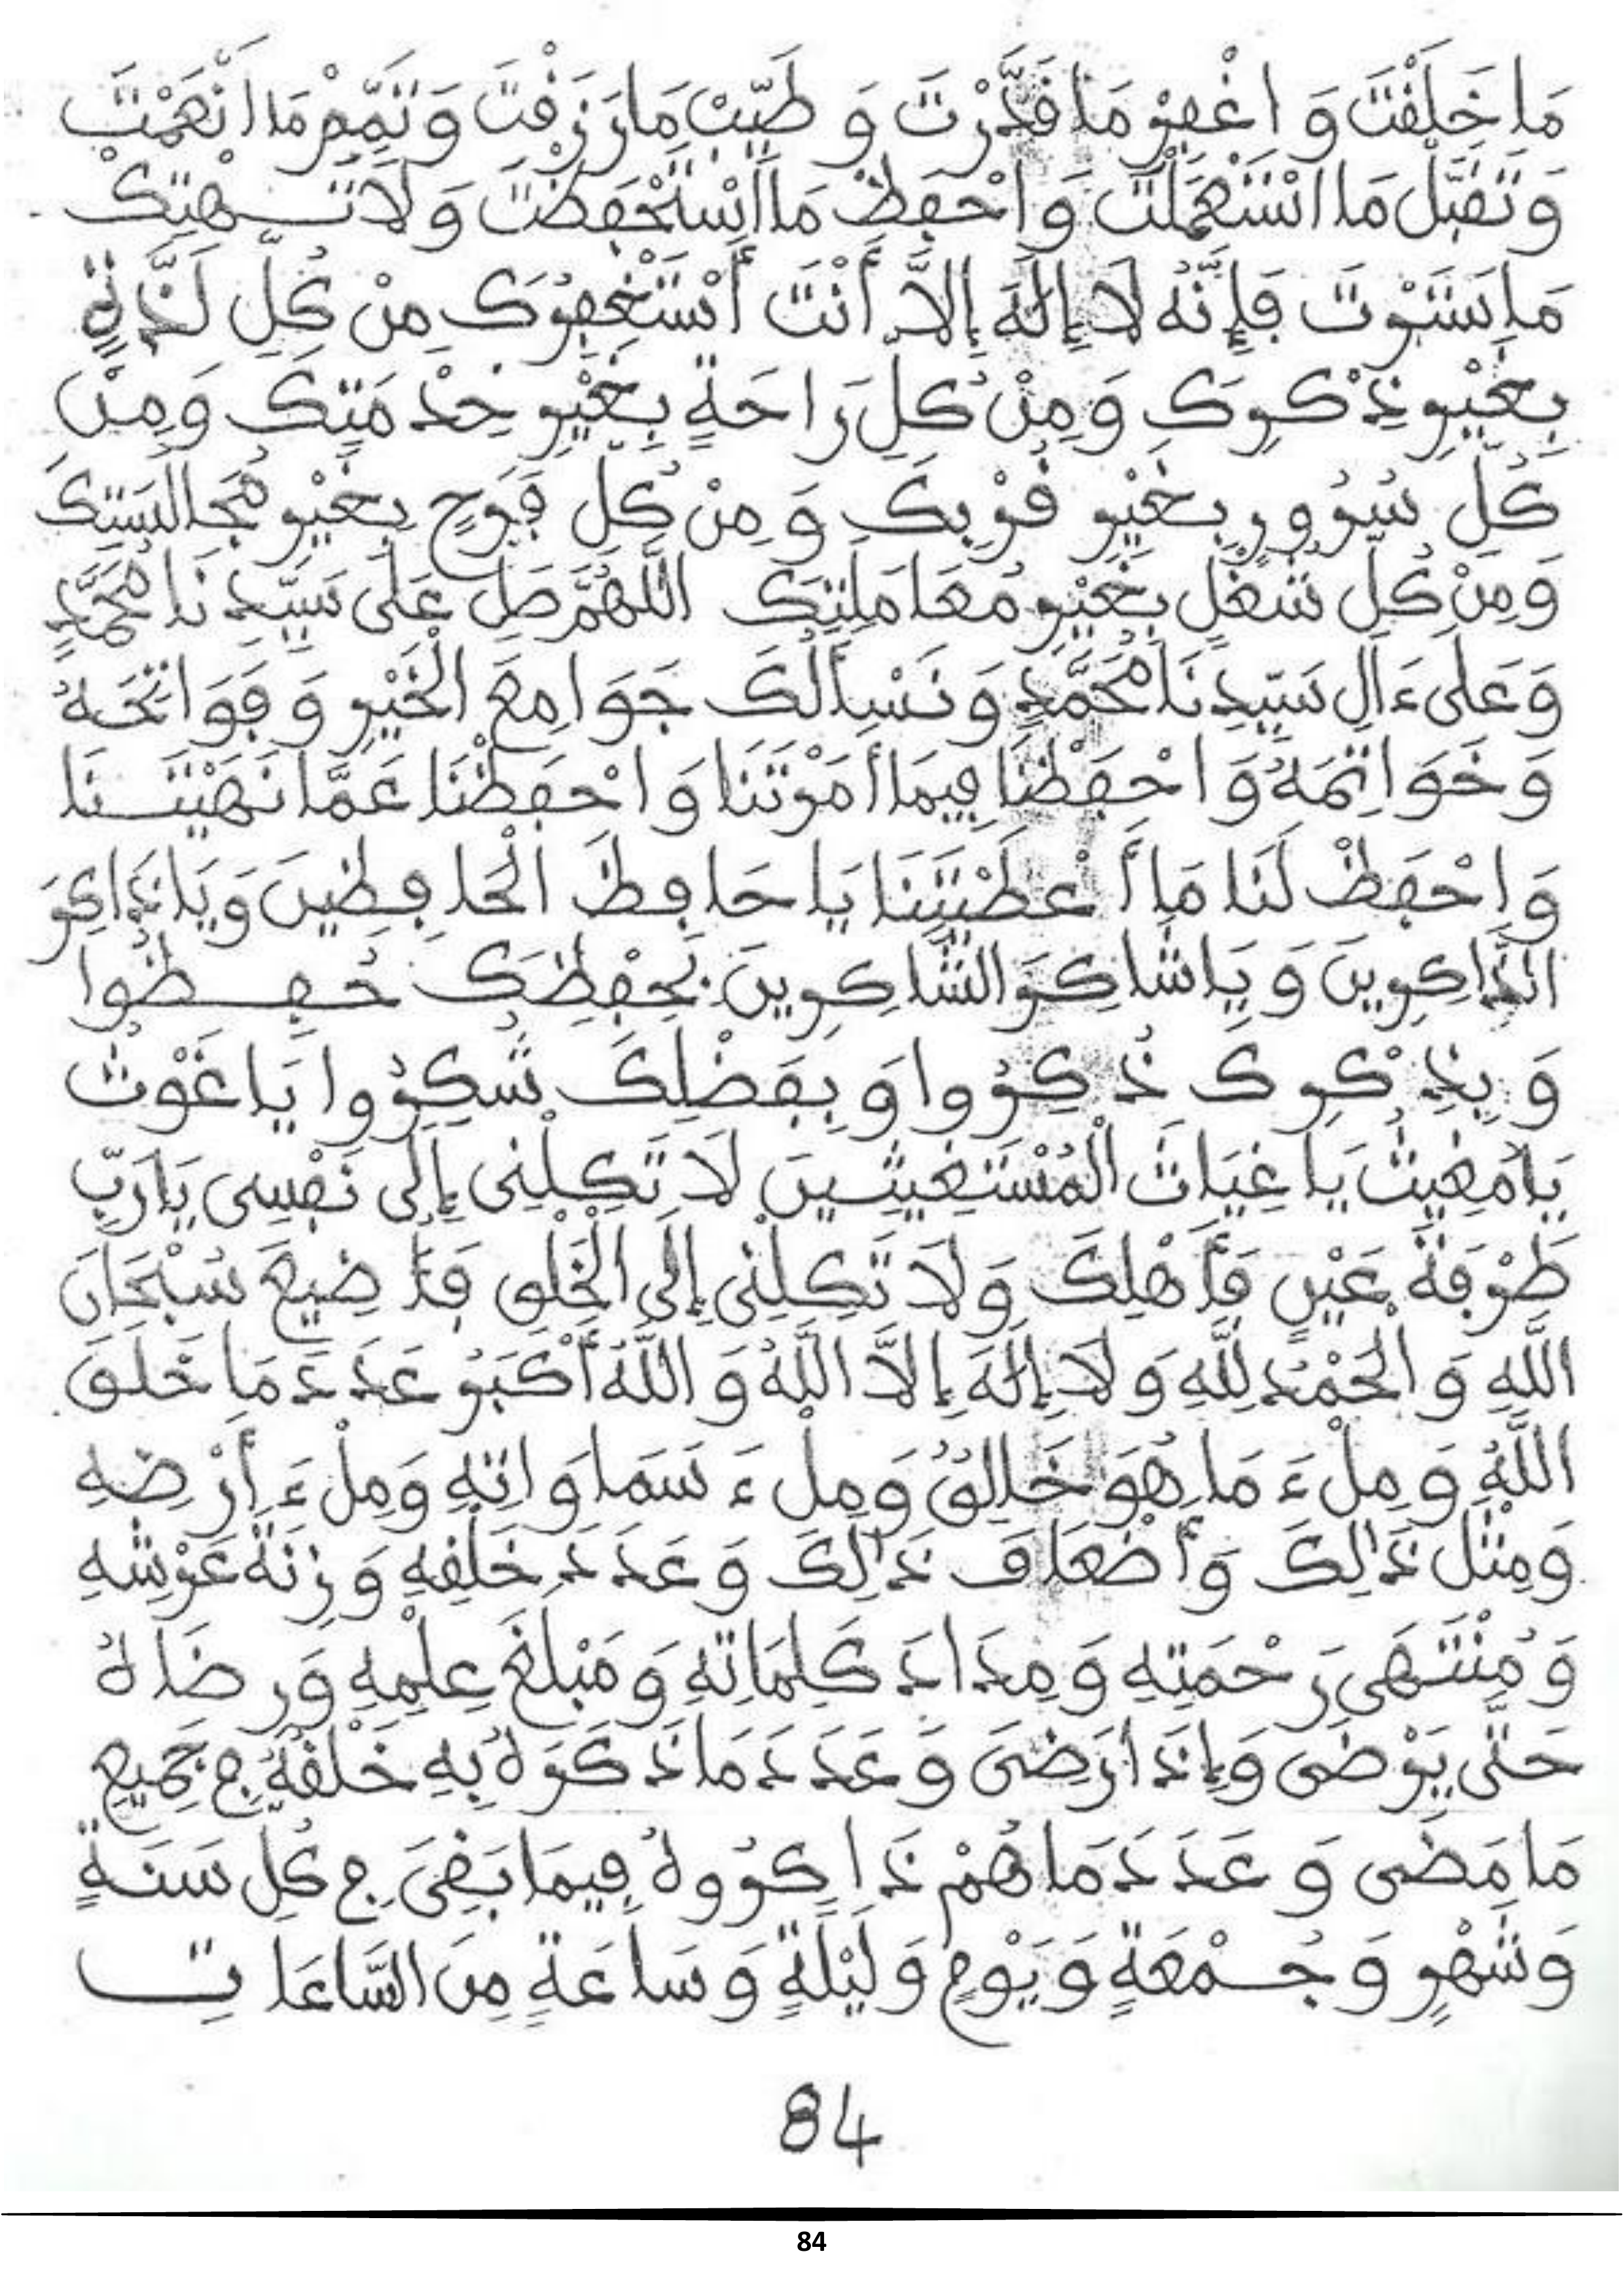 مَا خَلَقْتَ وَ اغْفِرْ مَا قَدَّرْتَ وَ طَيِّبْ مَا رَزَقْتَ وَ تَمِّمْ مَا أَنْعَمْتَ
وَ تَقَبَّلْ مَا اسْتَعْمَلْتَ وَ احْفَظْ مَا اسْتَحْفَظْتَ وَ لَا تَهْتِكْ
مَا سَتَرْتَ فَإِنَّهُ لَا إِلَهَ إِلَّا أَنْتَ أَسْتَغْفِرُكَ مِنْ كُلِّ لَذَّةٍ
بِغَيْرِ ذِكْرِكَ وَ مِنْ كُلِّ رَاحَةٍ بِغَيْرِ خِدْمَتِكَ وَ مِنْ
كُلِّ سُرُورٍ بِغَيْرِ قُرْبِكَ وَ مِنْ كُلِّ فَرَحٍ بِغَيْرِ مُجَالَسَتِكَ
وَ مِنْ كُلِّ شُغْلٍ بِغَيْرِ مُعَامَلَتِكَ اللَّهُمَّ صَلِّ عَلَى سَيِّدِنَا مُحَمَّدٍ
وَ عَلَى ءَالِ سَيِّدِنَا مُحَمَّدٍ وَ نَسْأَلُكَ جَوَامِعَ الْخَيْرِ وَ فَوَاتِحَهُ
وَ خَوَاتِمَهُ وَ احْفَظْنَا فِيمَا أَمَرْتَنَا وَ احْفَظْنَا عَمَّا نَهَيْتَنَا
وَ احْفَظْ لَنَا مَا أَعْطَيْتَنَا يَا حَافِظَ الْحَافِظِينَ وَ يَا ذَاكِرَ
الذَّاكِرِينَ وَ يَا شَاكِرَ الشَّاكِرِينَ بِحِفْظِكَ حُفِظُوا
وَ بِذِكْرِكَ ذُكِرُوا وَ بِفَضْلِكَ شُكِرُوا يَا غَوْثُ
يَا مُغِيثُ يَا غِيَاثَ الْمُسْتَغِيثِينَ لَا تَكِلْنِى إِلَى نَفْسِى يَا رَبِّ
طَرْفَةَ عَيْنٍ فَأَهْلِكَ وَ لَا تَكِلْنِى إِلَى الْخَلْقِ فَأَضِيعَ سُبْحَانَ
اللَّهِ وَ الْحَمْدُ لِلَّهِ وَ لَا إِلَهَ إِلَّا اللَّهُ وَ اللَّهُ أَكْبَرُ عَدَدَ مَا خَلَقَ
اللَّهُ وَ مِلْءَ مَا هُوَ خَالِقٌ وَ مِلْءَ سَمَاوَاتِهِ وَ مِلْءَ أَرْضِهِ
وَ مِثْلَ ذَالِكَ وَ أَضْعَافَ ذَالِكَ وَ عَدَدَ خَلْقِهِ وَ زِنَةَ عَرْشِهِ
وَ مُنْتَهَى رَحْمَتِهِ وَ مِدَادَ كَلِمَاتِهِ وَ مَبْلَغَ عِلْمِهِ وَ رِضَاهُ
حَتَّى يَرْضَى وَ إِذَا رَضِىَ وَ عَدَدَ مَا ذَكَرَهُ بِهِ خَلْقُهُ فِى جَمِيعِ
مَا مَضَى وَ عَدَدَ مَا هُمْ ذَاكِرُوهُ فِيمَا بَقِىَ فِى كُلِّ سَنَةٍ
وَ شَهْرٍ وَ جُمْعَةٍ وَ يَوْمٍ وَ لَيْلَةٍ وَ سَاعَةٍ مِنَ السَّاعَاتِ
84
84